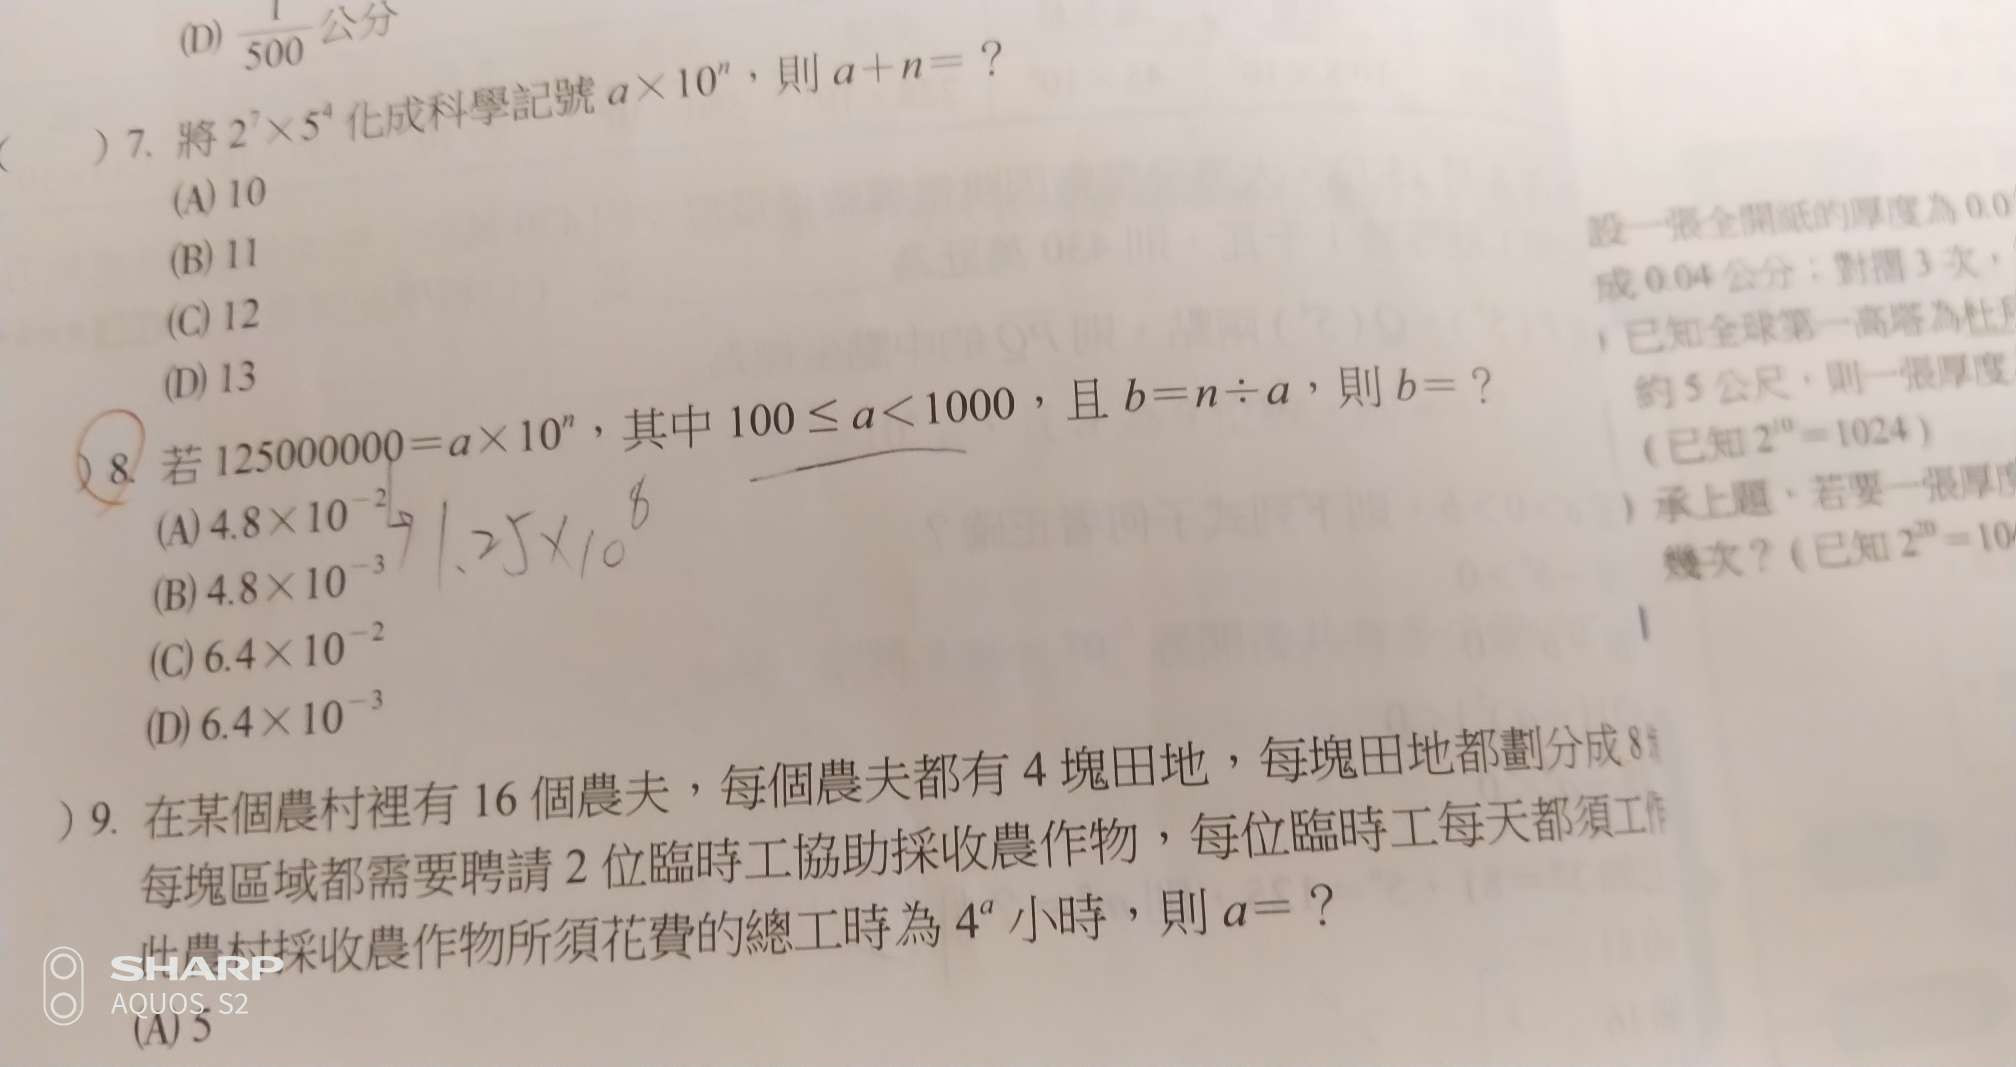 (D) 1/500 公分
( ) 7. 將 2⁷×5⁴ 化成科學記號 a×10ⁿ，則 a+n=？
(A) 10
(B) 11
(C) 12
(D) 13
) 8. 若 125000000=a×10ⁿ，其中 100≤a<1000，且 b=n÷a，則 b=？
(A) 4.8×10⁻²
1.25×10⁸
(B) 4.8×10⁻³
(C) 6.4×10⁻²
(D) 6.4×10⁻³
) 9. 在某個農村裡有 16 個農夫，每個農夫都有 4 塊田地，每塊田地都劃分成 8
每塊區域都需要聘請 2 位臨時工協助採收農作物，每位臨時工每天都須工作
此農村採收農作物所須花費的總工時為 4ᵃ 小時，則 a=？
(A) 5
設一張全開紙的厚度為 0.0
成 0.04 公分；對摺 3 次，
已知全球第一高塔為杜
約 5 公尺，則一張厚度
(已知 2¹⁰=1024)
) 承上題，若要一張厚度
幾次？(已知 2²⁰=10
SHARP
AQUOS S2